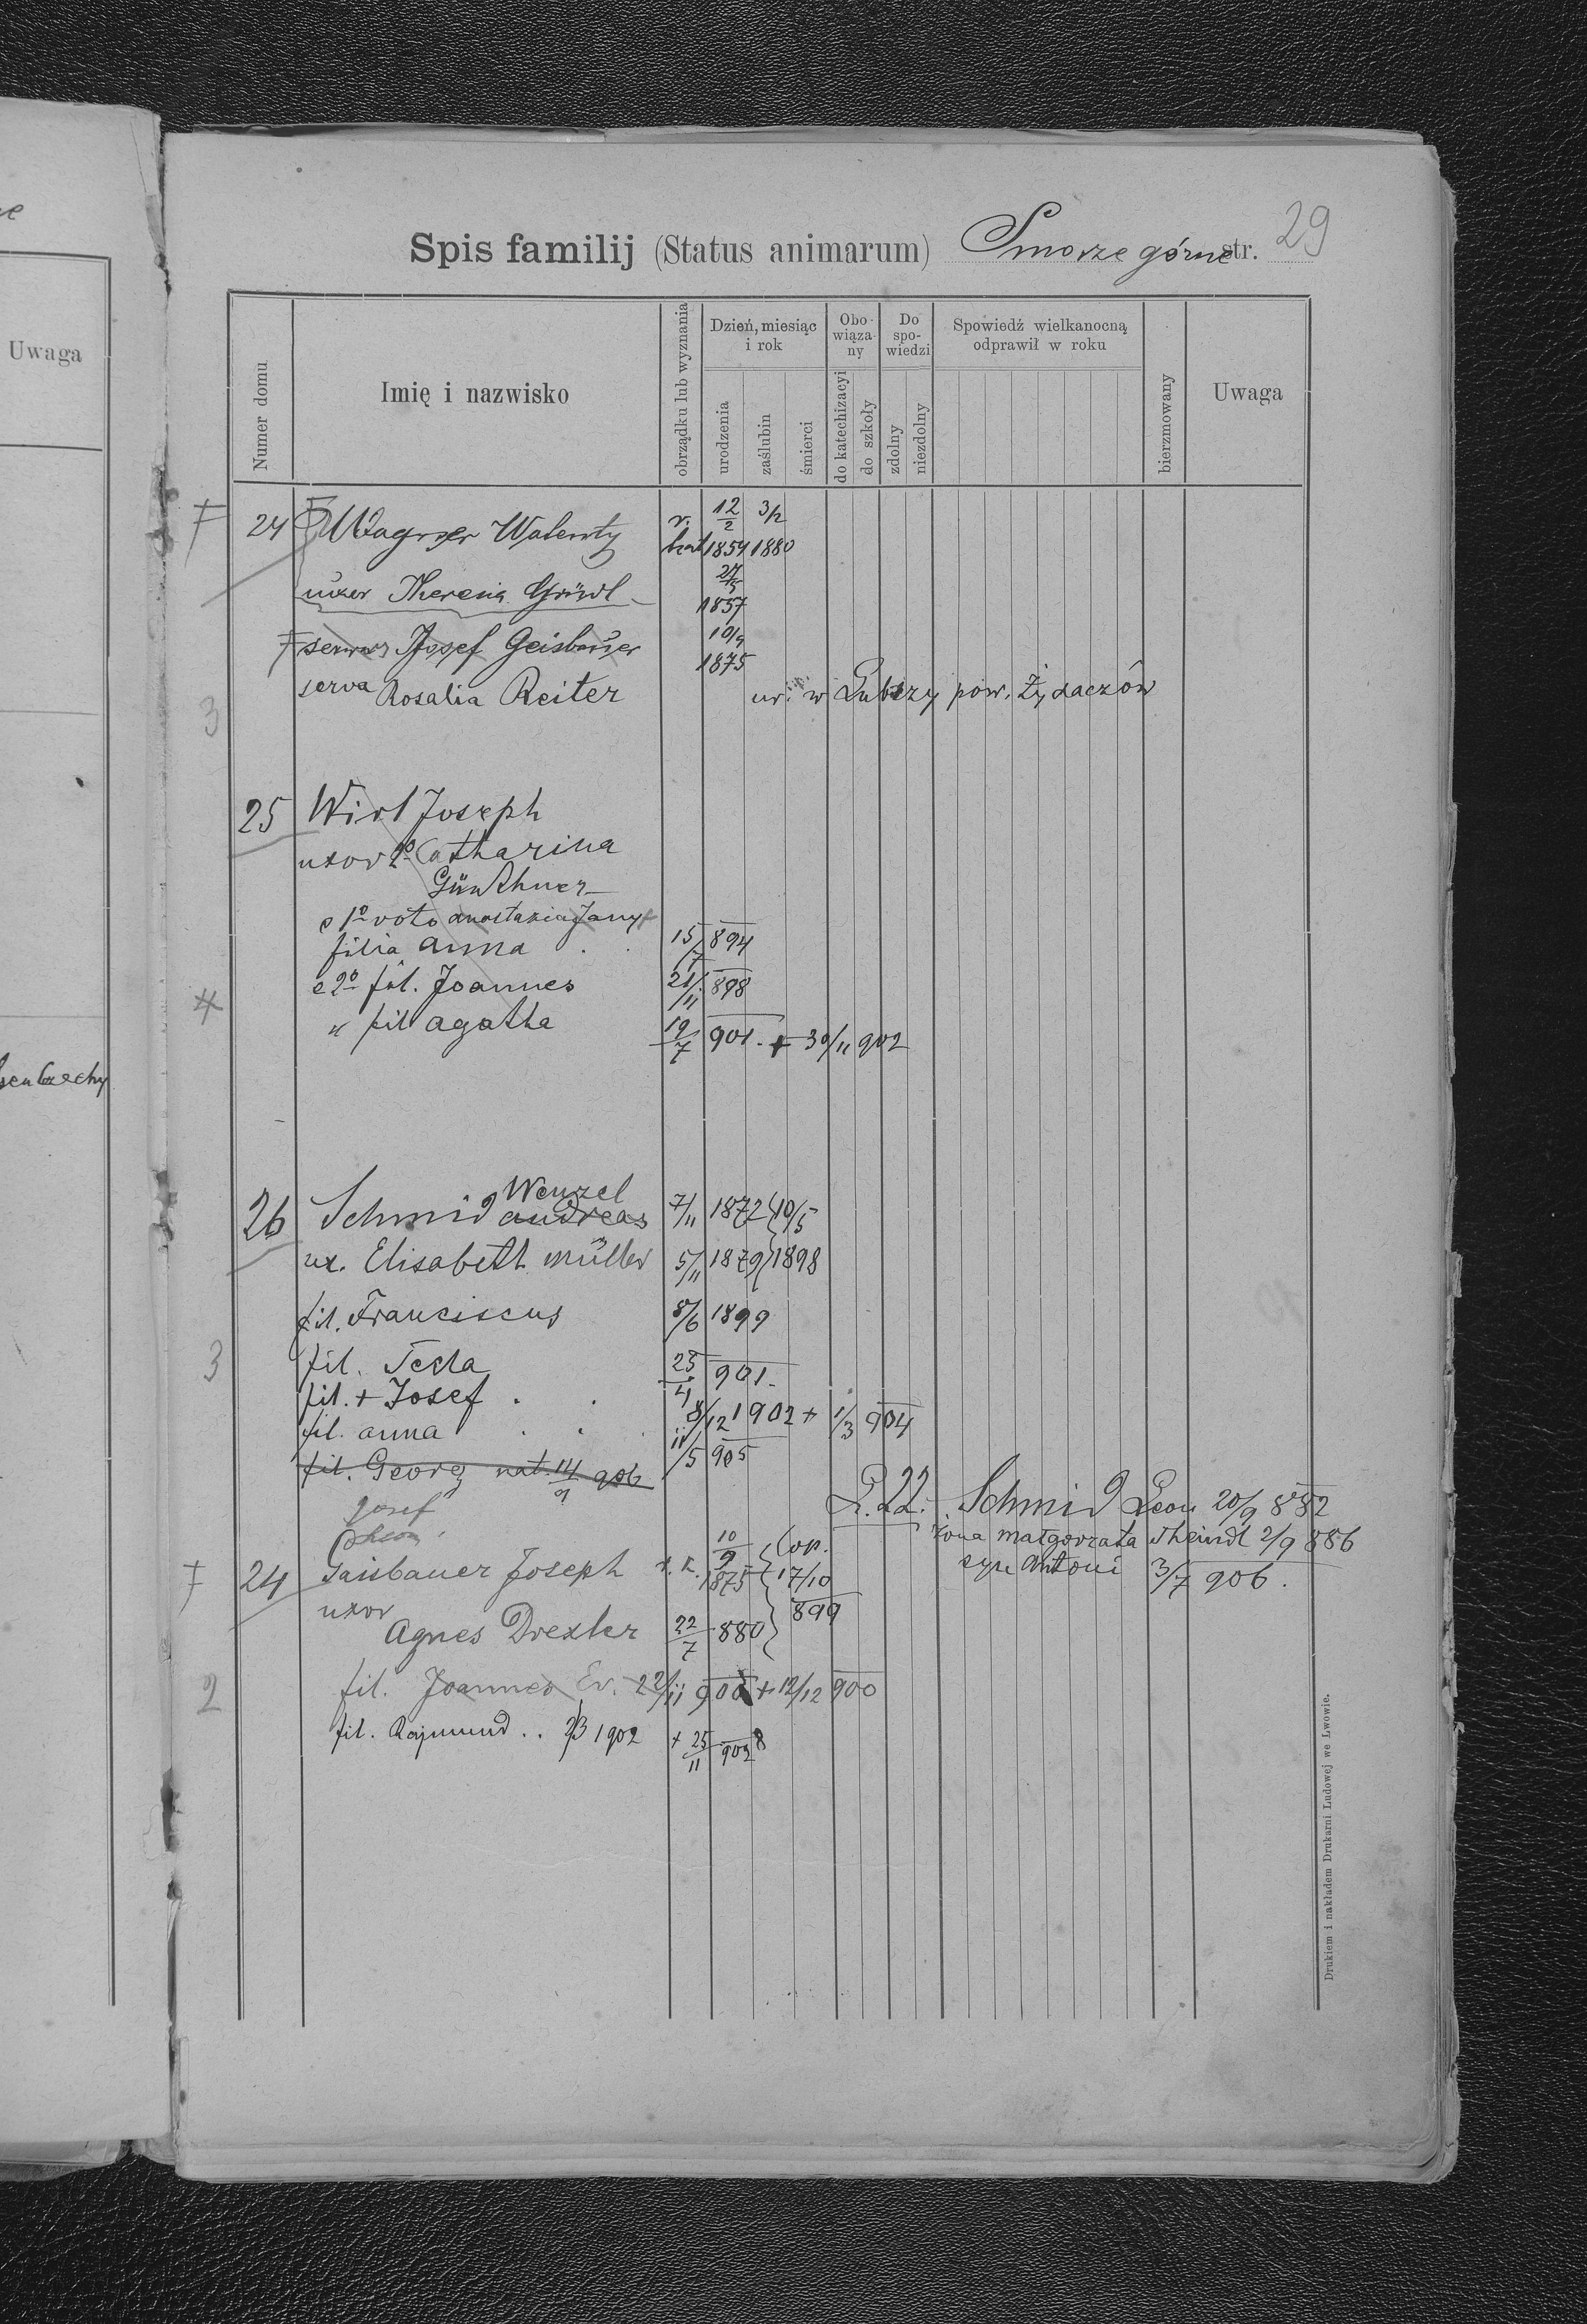 Uwaga
Spis familij (Status animarum) Smorze górne str. 29
Numer domu
Imię i nazwisko
obrządku lub wyznania
Dzień, miesiąc i rok
urodzenia
zaślubin
śmierci
Obowiązany
do katechizacyi
do szkoły
Do spowiedzi
zdolny
niezdolny
Spowiedź wielkanocną odprawił w roku
bierzmowany
Uwaga
24 Wagner Walenty r. 12/2 3/2
1854 1880
uxor Theresia 27/5
1857
servus Josef Geisbauer 10/9
1875
serva Rosalia Reiter ur. w pow. Żydaczów
3
25 Wirl Joseph
uxor 2º Catharina
Günthner
e 1º voto anastazia
filia anna . . 15/7 894
e 2º fil. Joannes 21/11 898
4
" fil agatha 19/7 901. + 30/11 902
Wenzel
26 Schmid andreas 7/11 1872 10/5
ux. Elisabeth Müller 5/11 1879 1898
fil. Franciscus 8/6 1899
3 fil. Tecla 25/4 901.
fil. + Josef . . 8/12 1902 + 1/3 904
fil. anna . . . 11/5 905
fil. Georg nat. 14/9 906
L. 22. Schmid Leon 20/9 882
żona małgorzata Theindl 2/9 886
syn Antoni 3/7 906.
Josef
24 Gaisbauer Joseph r. l. 10/9 1875 Cop. 17/10 899
uxor
Agnes Drexler 22/7 880
2 fil. Joannes Ev. 22/11 900 + 12/12 900
fil. Rajmund . . 2/3 1902 + 25/11 903 8
Drukiem i nakładem Drukarni Ludowej we Lwowie.